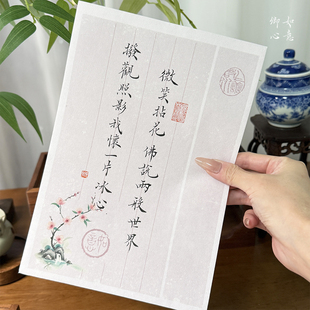 微笑拈花 佛說兩般世界
撥觀照影 我懷一片冰心
如意
卿心